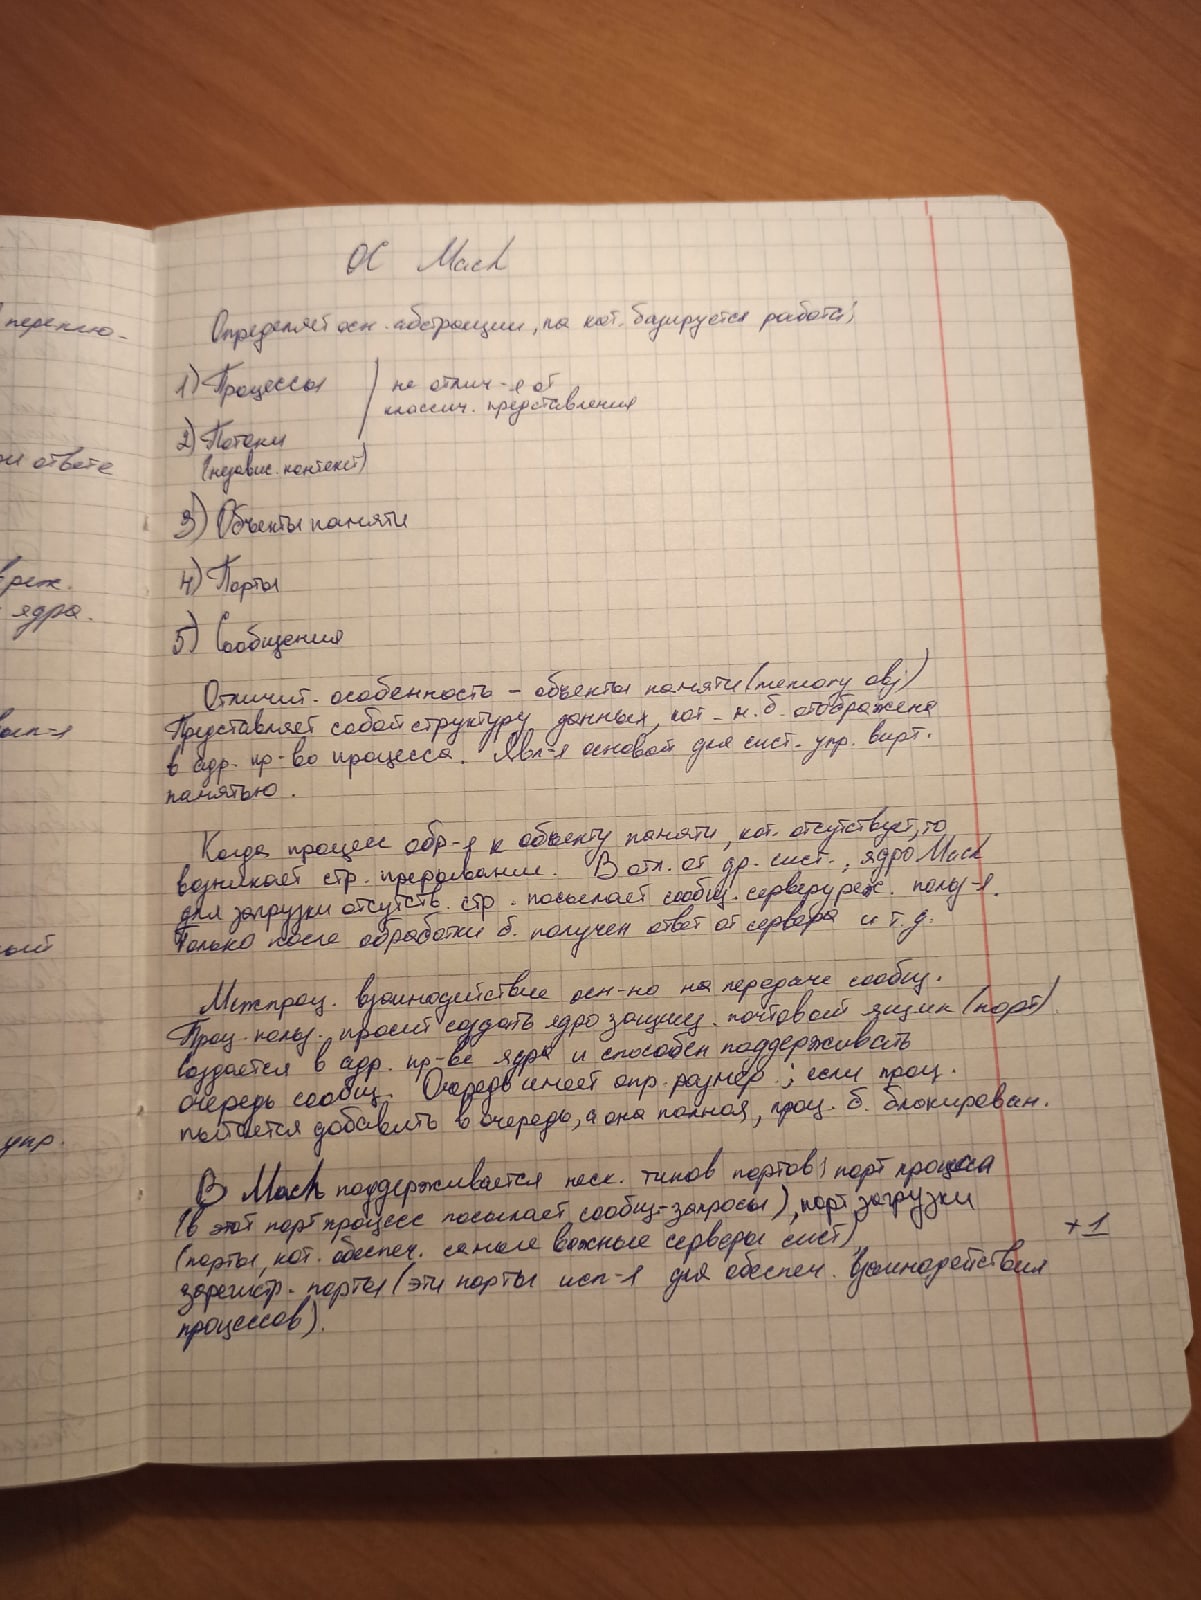 ОС Mach
Определяет осн. абстракции, на кот. базируется работа:
1) Процессы
не отлич-я от
классич. представления
2) Потоки
(независ. контекст)
3) Объекты памяти
4) Порты
5) Сообщения
Отличит. особенность - объекты памяти (memory obj)
Представляет собой структуру данных, кот. м.б. отображена
в адр. пр-во процесса. Явл-я основой для сист. упр. вирт.
памятью.
Когда процесс обр-я к объекту памяти, кот. отсутствует, то
возникает стр. прерывание. В отл. от др. сист., ядро Mach
для загрузки отсутств. стр. посылает сообщ. серверу реж. польз-я.
Только после обработки б. получен ответ от сервера и т.д.
Межпроц. взаимодействие осн-но на передаче сообщ.
Проц. польз. просит создать ядро защищ. почтовый ящик (порт)
создается в адр. пр-ве ядра и способен поддерживать
очередь сообщ. Очередь имеет опр. размер; если проц.
пытается добавить в очередь, а она полная, проц. б. блокирован.
В Mach поддерживается неск. типов портов: порт процесса
(в этот порт процесс посылает сообщ-запросы), порт загрузки
(порты, кот. обеспеч. самые важные серверы сист)
+1
зарегистр. порты (эти порты исп-я для обеспеч. взаимодействия
процессов).
переклю-
при ответе
реж.
ядра.
исп-я
упр.